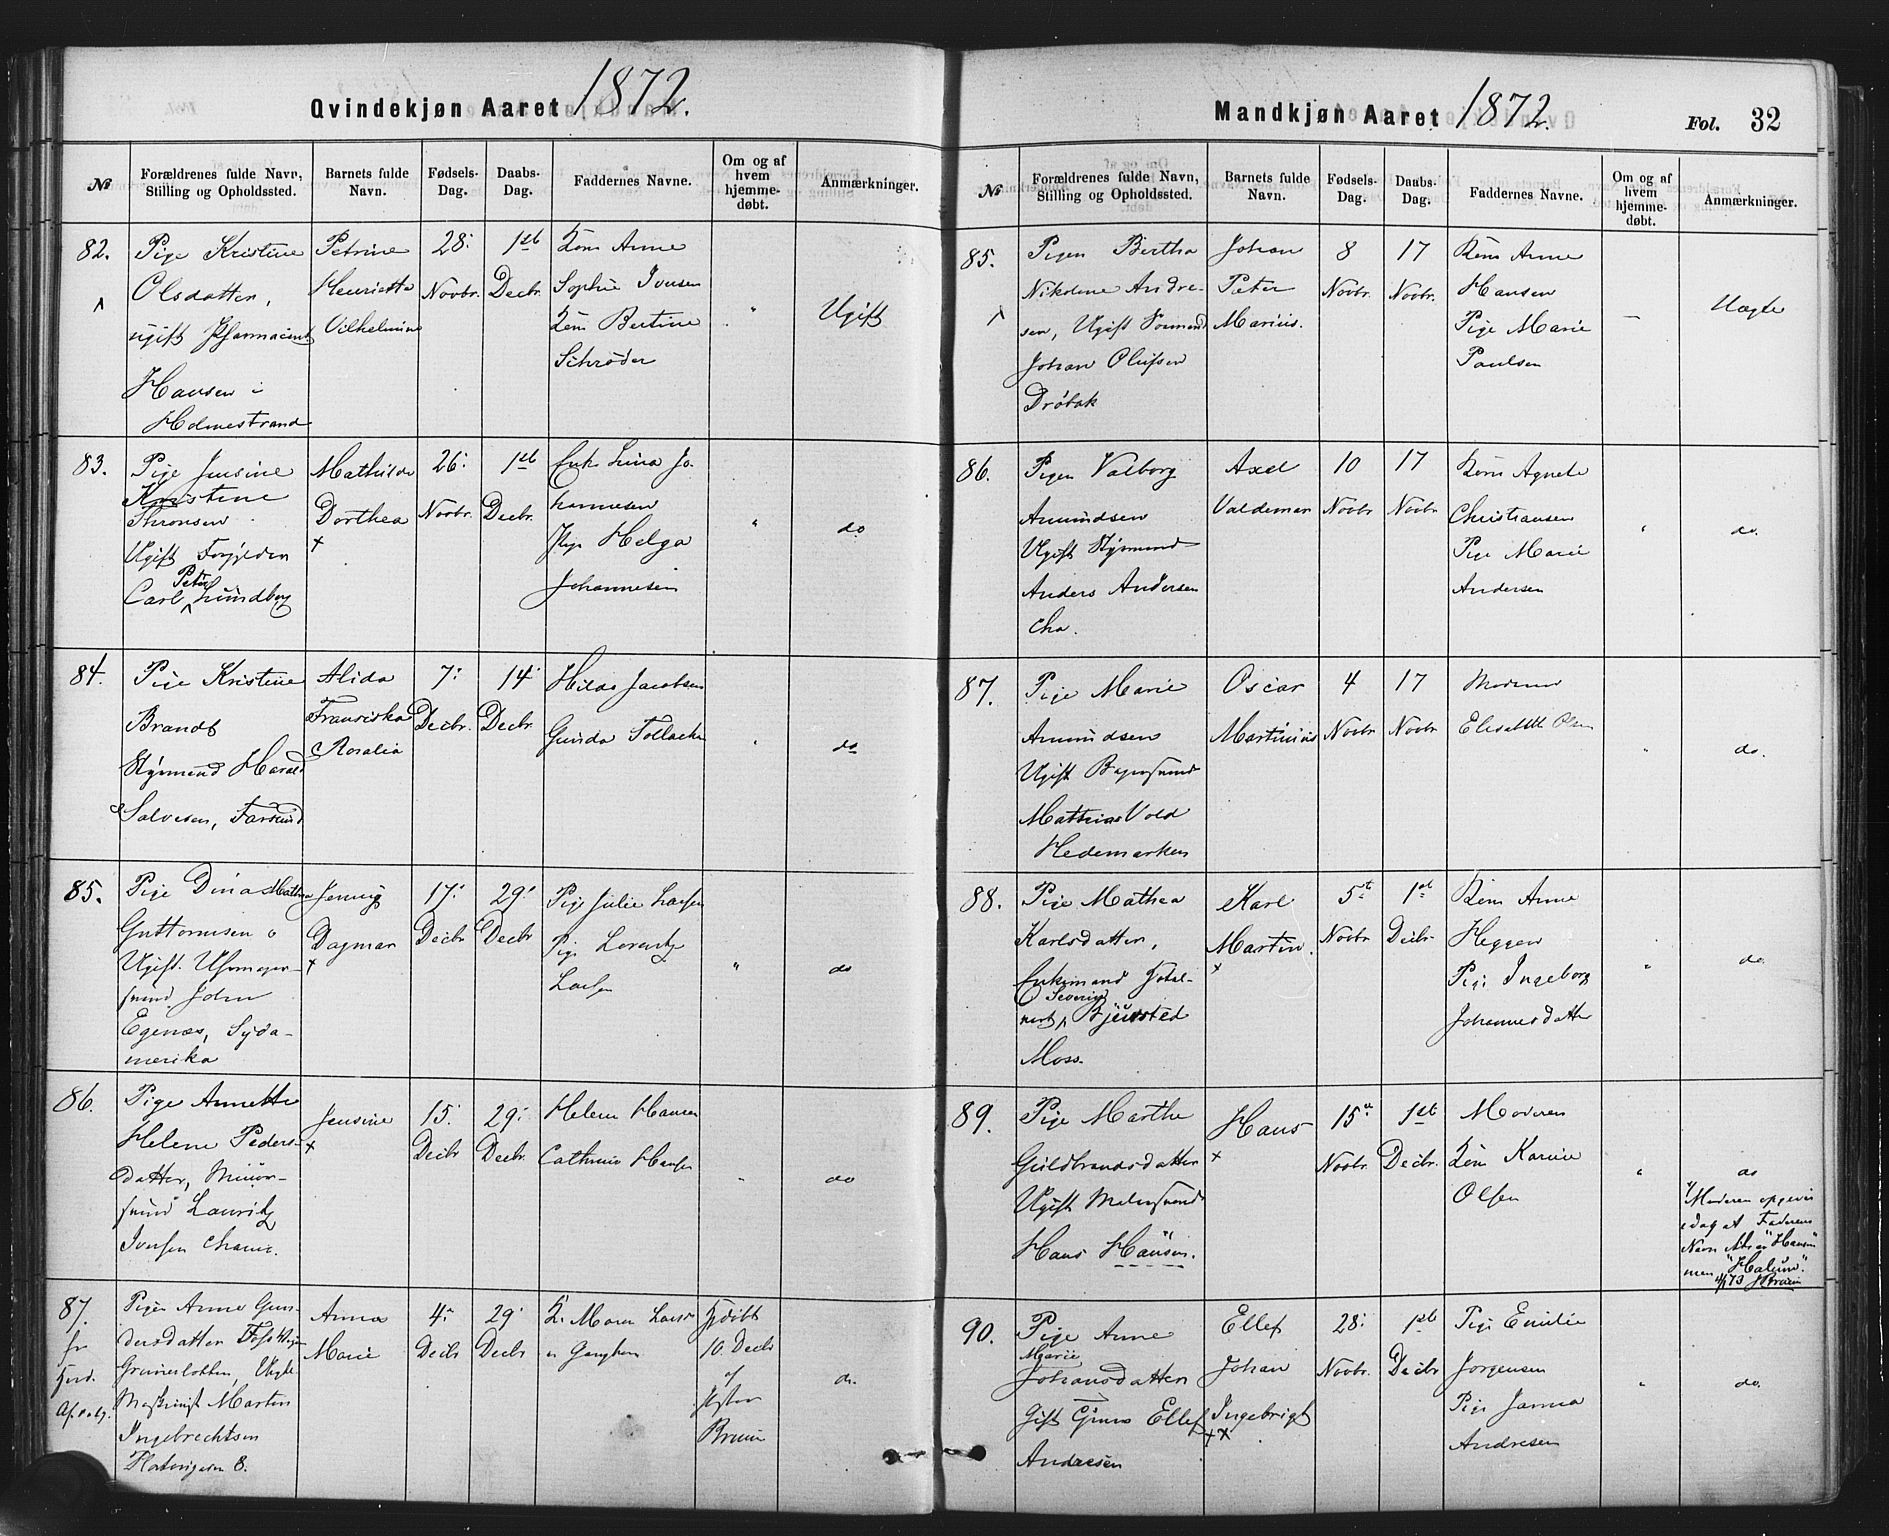 Qvindekjøn Aaret 1872.
№
Forældrenes fulde Navn,
Stilling og Opholdssted.
Barnets fulde
Navn.
Fødsels-
Dag.
Daabs-
Dag.
Faddernes Navne.
Om og af
hvem
hjemme-
døbt.
Anmærkninger.
82.
Pige Kristine
Olsdatter,
ugift Pharmaceut
Hansen i
Holmestrand
Petrine
Henriette
Vilhelmine
28:
Novbr.
1st
Decbr.
Kone Anne
Sophie Iversen
Kone Bertine
Schrøder
"
Ugift
83.
Pige Jensine
Kristine
Thronsen
Ugift Forgylder
Peter
Carl Lundberg
Mathilde
Dorthea
+
26:
Novbr.
1st
Decbr.
Enke Lina Jo-
hannesen
Pige Helga
Johannesen
"
do
84.
Pige Kristine
Brandt
Styrmand Harald
Salvesen, Farsund
Alida
Fransiska
Rosalia
7:
Decbr.
14
Decbr.
Hilda Jacobsen
Gunda
"
do
85.
Pige Dina Mathea
Guttormsen
Ugift. Uhrmager-
svend John
Egenæs, Syda-
merika
Jenny
Dagmar
+
17:
Decbr
29:
Decbr
Pige Julie Larsen
Pige
Larsen
"
do
86.
Pige Annette
Helene Peders-
datter, Muur-
svend Lauritz
Iversen Chania.
Jensine
+
15:
Decbr
29:
Decbr.
Helene Hansen
Cathrine Hansen
"
do
87.
Pigen Anne Gun-
dersdatter
Grünerløkken, Ugift
Maskinist Martin
Ingebrechtsen
8.
Anna
Marie
4:
Decbr
29
Decbr
K. Maren Larsen
Hjdøbt
10 Decbr
af
Bruun
do.
Mandkjøn Aaret 1872.
Fol. 32
№
Forældrenes fulde Navn,
Stilling og Opholdssted.
Barnets fulde
Navn.
Fødsels-
Dag.
Daabs-
Dag.
Faddernes Navne.
Om og af
hvem
hjemme-
døbt.
Anmærkninger.
85.
Pigen Bertha
Nikoline Andre-
sen, Ugift Formand
Johan Olufsen
Drøbak
Johan
Peter
Marius.
8
Novbr.
17
Novbr.
Kone Anne
Hansen
Pige Marie
Paulsen
—
Uægte
86.
Pigen Valborg
Amundsen
Ugift Styrmand
Anders Andersen
Cha.
Axel
Valdemar
10
Novbr
17
Novbr
Kone Agnete
Christiansen
Pige Marie
Andersen
"
do.
87.
Pige Marie
Amundsen
Ugift Bagersvend
Mathias Vold
Hedemarken
Oscar
Martinius
4
Novbr
17
Novbr
Moderen
Elisabeth Olsen
"
do.
88.
Pige Mathea
Karlsdatter,
Enkemand Hotel-
Severin
vert, Bjersted
Moss.
Karl
Martin.
+
5t
Novbr.
1st
Decbr.
Kone Anne
Heggen
Pige Ingeborg
Johannesdatter
"
do.
89.
Pige Marthe
Guldbrandsdatter
Ugift Malersvend
Hans Hansen.
Hans
+
15
Novbr.
1st
Decbr.
Moderen
Kone Karine
Olsen
"
do
Moderen opgiver
idag at Faderens
Navn ikke er "Hansen"
men "Halum".
73 Bruun
90.
Pige Anne
Marie
Johansdatter
Gift Ellef
Andresen
Ellef
Johan
Ingebrigt
++
28:
Novbr.
1st
Decbr
Pige Emilie
Jørgensen
Pige Janna
Andresen
"
do.